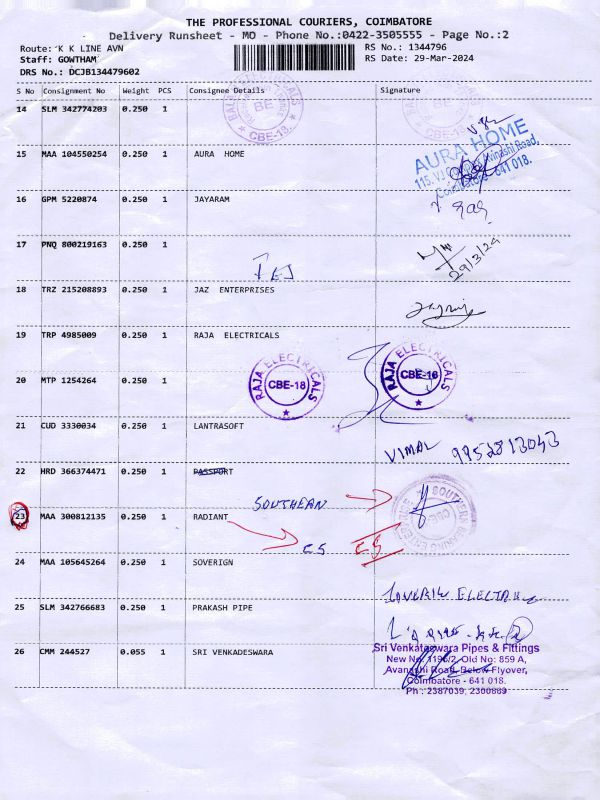 THE PROFESSIONAL COURIERS, COIMBATORE
Delivery Runsheet - MO - Phone No.:0422-3505555 - Page No.:2
Route:'K K LINE AVN RS No.: 1344796
Staff: GOWTHAM RS Date: 29-Mar-2024
DRS No.: DCJB134479602
S No Consignment No Weight PCS Consignee Details Signature
14 SLM 342774203 0.250 1
BE
CBE-18.
15 MAA 104550254 0.250 1 AURA HOME
AURA HOME
Avinashi Road,
Coimbatore - 641 018.
16 GPM 5220874 0.250 1 JAYARAM
17 PNQ 800219163 0.250 1
29/3/24
18 TRZ 215208893 0.250 1 JAZ ENTERPRISES
19 TRP 4985009 0.250 1 RAJA ELECTRICALS
RAJA ELECTRICALS
CBE-18
RAJA ELECTRICALS
CBE-18
20 MTP 1254264 0.250 1
21 CUD 3330034 0.250 1 LANTRASOFT
VIMAL 9952813043
22 HRD 366374471 0.250 1 PASSPORT
SOUTHERN
SOUTHERN BEARING
23 MAA 300812135 0.250 1 RADIANT
CS
24 MAA 105645264 0.250 1 SOVERIGN
25 SLM 342766683 0.250 1 PRAKASH PIPE
26 CMM 244527 0.055 1 SRI VENKADESWARA
Sri Venkateswara Pipes & Fittings
New No: 1196/2, Old No: 859 A,
Avanashi Road, Below Flyover,
Coimbatore - 641 018.
Ph : 2387039, 2300869